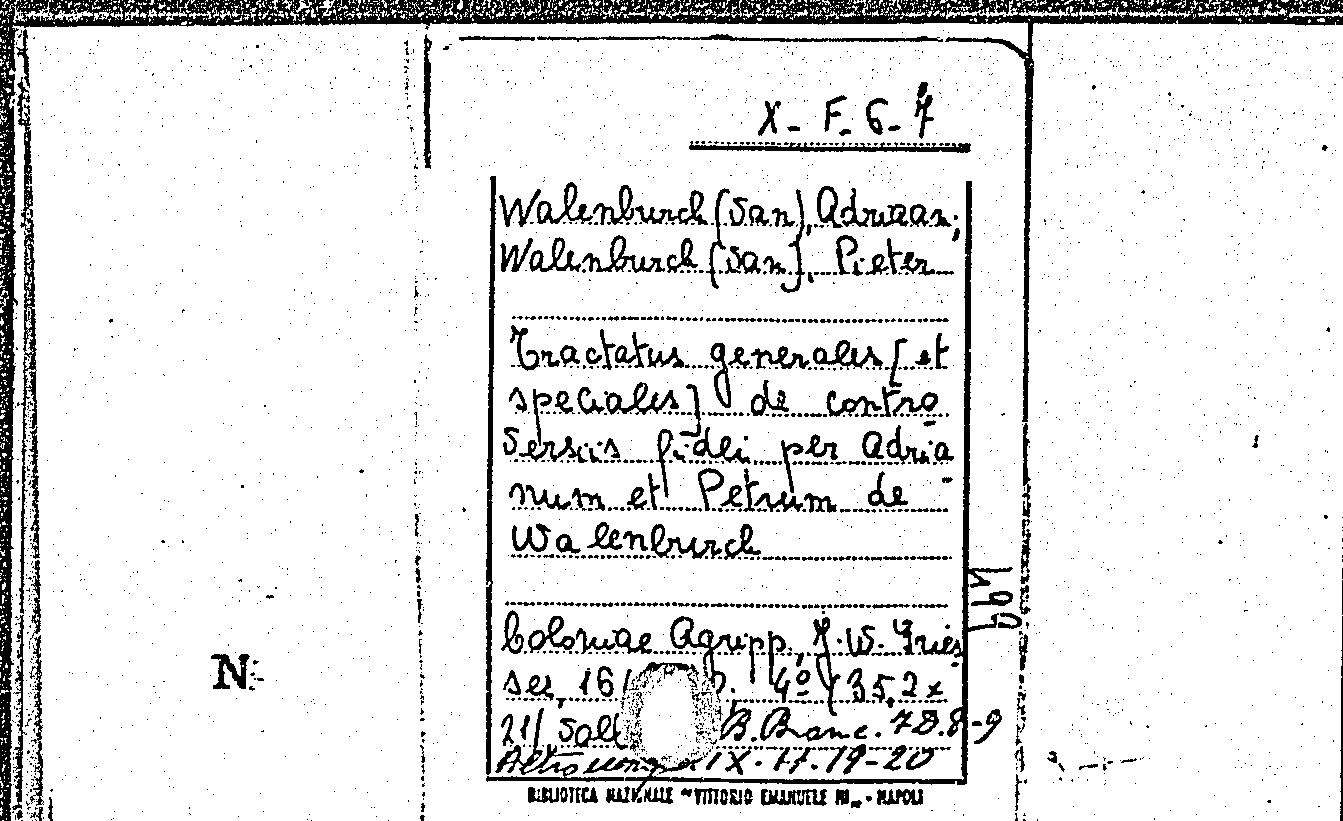 X - F. 6 - 7
Walenburch (van), Adriaan;
Walenburch (van), Pieter
Tractatus generales [et
speciales] de contro
versiis fidei per Adria
num et Petrum de
Walenburch
Coloniae Agripp., J. W. Fries
ser, 16 4º (35,2 x
21) voll B. Branc. 7D. 8-9
Altro IX. 17. 19-20
BIBLIOTECA NAZIONALE "VITTORIO EMANUELE III" - NAPOLI
N.